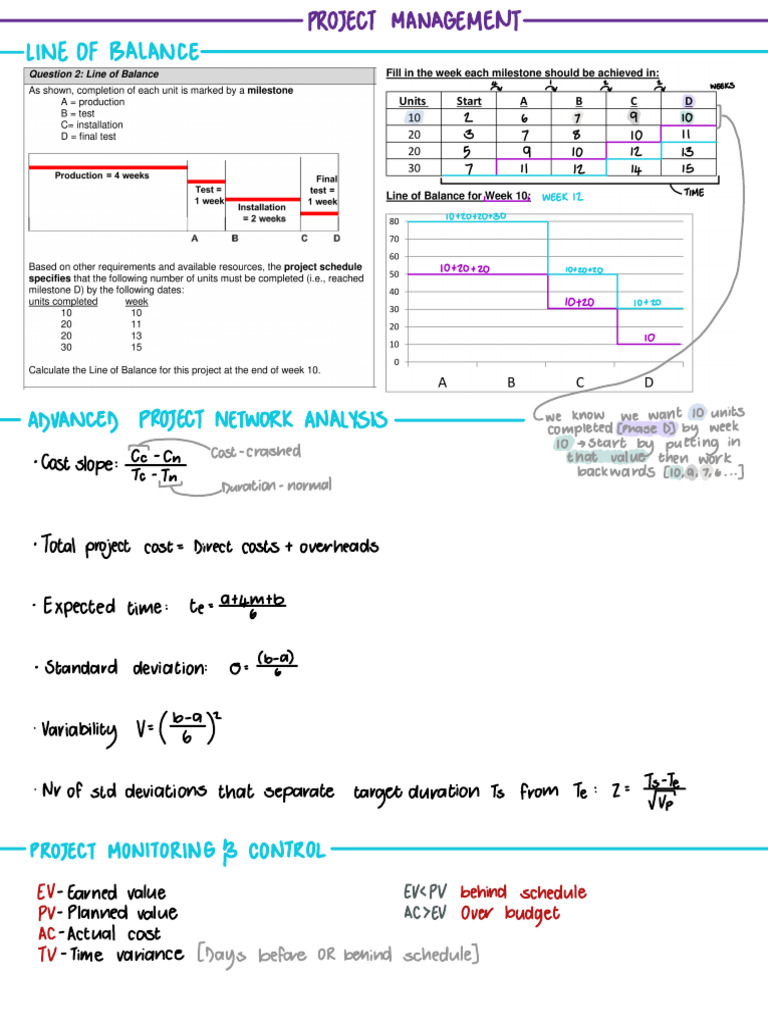 PROJECT MANAGEMENT
LINE OF BALANCE
Question 2: Line of Balance
As shown, completion of each unit is marked by a milestone
A = production
B = test
C= installation
D = final test
Production = 4 weeks
Test = 1 week
Installation = 2 weeks
Final test = 1 week
A B C D
Based on other requirements and available resources, the project schedule
specifies that the following number of units must be completed (i.e., reached
milestone D) by the following dates:
units completed week
10 10
20 11
20 13
30 15
Calculate the Line of Balance for this project at the end of week 10.
Fill in the week each milestone should be achieved in:
4 1 2 1 WEEKS
Units Start A B C D
10 2 6 7 9 10
20 3 7 8 10 11
20 5 9 10 12 13
30 7 11 12 14 15
TIME
Line of Balance for Week 10: WEEK 12
10+20+20+30
80
70
60
50
40
30
20
10
0
10+20+20
10+20+20
10+20
10+20
10
A B C D
we know we want 10 units
completed [Phase D] by week
10 → start by putting in
that value then work
backwards [10, 9, 7, 6 ...]
ADVANCED PROJECT NETWORK ANALYSIS
· Cost slope: Cc - Cn / Tc - Tn
Cost - crashed
Duration - normal
· Total project cost = Direct costs + overheads
· Expected time: te = a+4m+b / 6
· Standard deviation: σ = (b-a) / 6
· Variability V = (b-a / 6)²
· Nr of std deviations that separate target duration Ts from Te : Z = Ts-Te / √Vp
PROJECT MONITORING & CONTROL
EV - Earned value
PV - Planned value
AC - Actual cost
TV - Time variance [Days before OR behind schedule]
EV<PV behind schedule
AC>EV Over budget